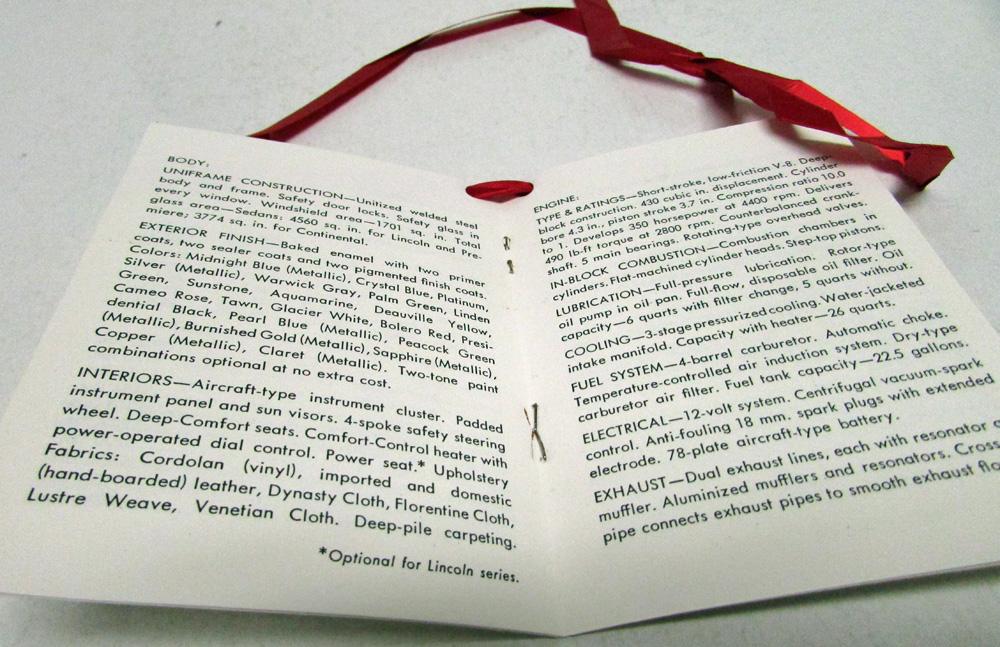 BODY:
UNIFRAME CONSTRUCTION—Unitized welded steel
body and frame. Safety door locks. Safety glass in
every window. Windshield area—1701 sq. in. Total
glass area—Sedans: 4560 sq. in. for Lincoln and Pre-
miere; 3774 sq. in. for Continental.
EXTERIOR FINISH—Baked enamel with two primer
coats, two sealer coats and two pigmented finish coats.
Colors: Midnight Blue (Metallic), Crystal Blue, Platinum,
Silver (Metallic), Warwick Gray, Palm Green, Linden
Green, Sunstone, Aquamarine, Deauville Yellow,
Cameo Rose, Tawn, Glacier White, Bolero Red, Presi-
dential Black, Pearl Blue (Metallic), Peacock Green
(Metallic), Burnished Gold (Metallic), Sapphire (Metallic),
Copper (Metallic), Claret (Metallic). Two-tone paint
combinations optional at no extra cost.
INTERIORS—Aircraft-type instrument cluster. Padded
instrument panel and sun visors. 4-spoke safety steering
wheel. Deep-Comfort seats. Comfort-Control heater with
power-operated dial control. Power seat.* Upholstery
Fabrics: Cordolan (vinyl), imported and domestic
(hand-boarded) leather, Dynasty Cloth, Florentine Cloth,
Lustre Weave, Venetian Cloth. Deep-pile carpeting.
*Optional for Lincoln series.
ENGINE:
TYPE & RATINGS—Short-stroke, low-friction V-8. Deep-
block construction. 430 cubic in. displacement. Cylinder
bore 4.3 in., piston stroke 3.7 in. Compression ratio 10.0
to 1. Develops 350 horsepower at 4400 rpm. Delivers
490 lb-ft torque at 2800 rpm. Counterbalanced crank-
shaft. 5 main bearings. Rotating-type overhead valves.
IN-BLOCK COMBUSTION—Combustion chambers in
cylinders. Flat-machined cylinder heads. Step-top pistons.
LUBRICATION—Full-pressure lubrication. Rotor-type
oil pump in oil pan. Full-flow, disposable oil filter. Oil
capacity—6 quarts with filter change, 5 quarts without.
COOLING—3-stage pressurized cooling. Water-jacketed
intake manifold. Capacity with heater—26 quarts.
FUEL SYSTEM—4-barrel carburetor. Automatic choke.
Temperature-controlled air induction system. Dry-type
carburetor air filter. Fuel tank capacity—22.5 gallons.
ELECTRICAL—12-volt system. Centrifugal vacuum-spark
control. Anti-fouling 18 mm. spark plugs with extended
electrode. 78-plate aircraft-type battery.
EXHAUST—Dual exhaust lines, each with resonator a
muffler. Aluminized mufflers and resonators. Cross
pipe connects exhaust pipes to smooth exhaust flo